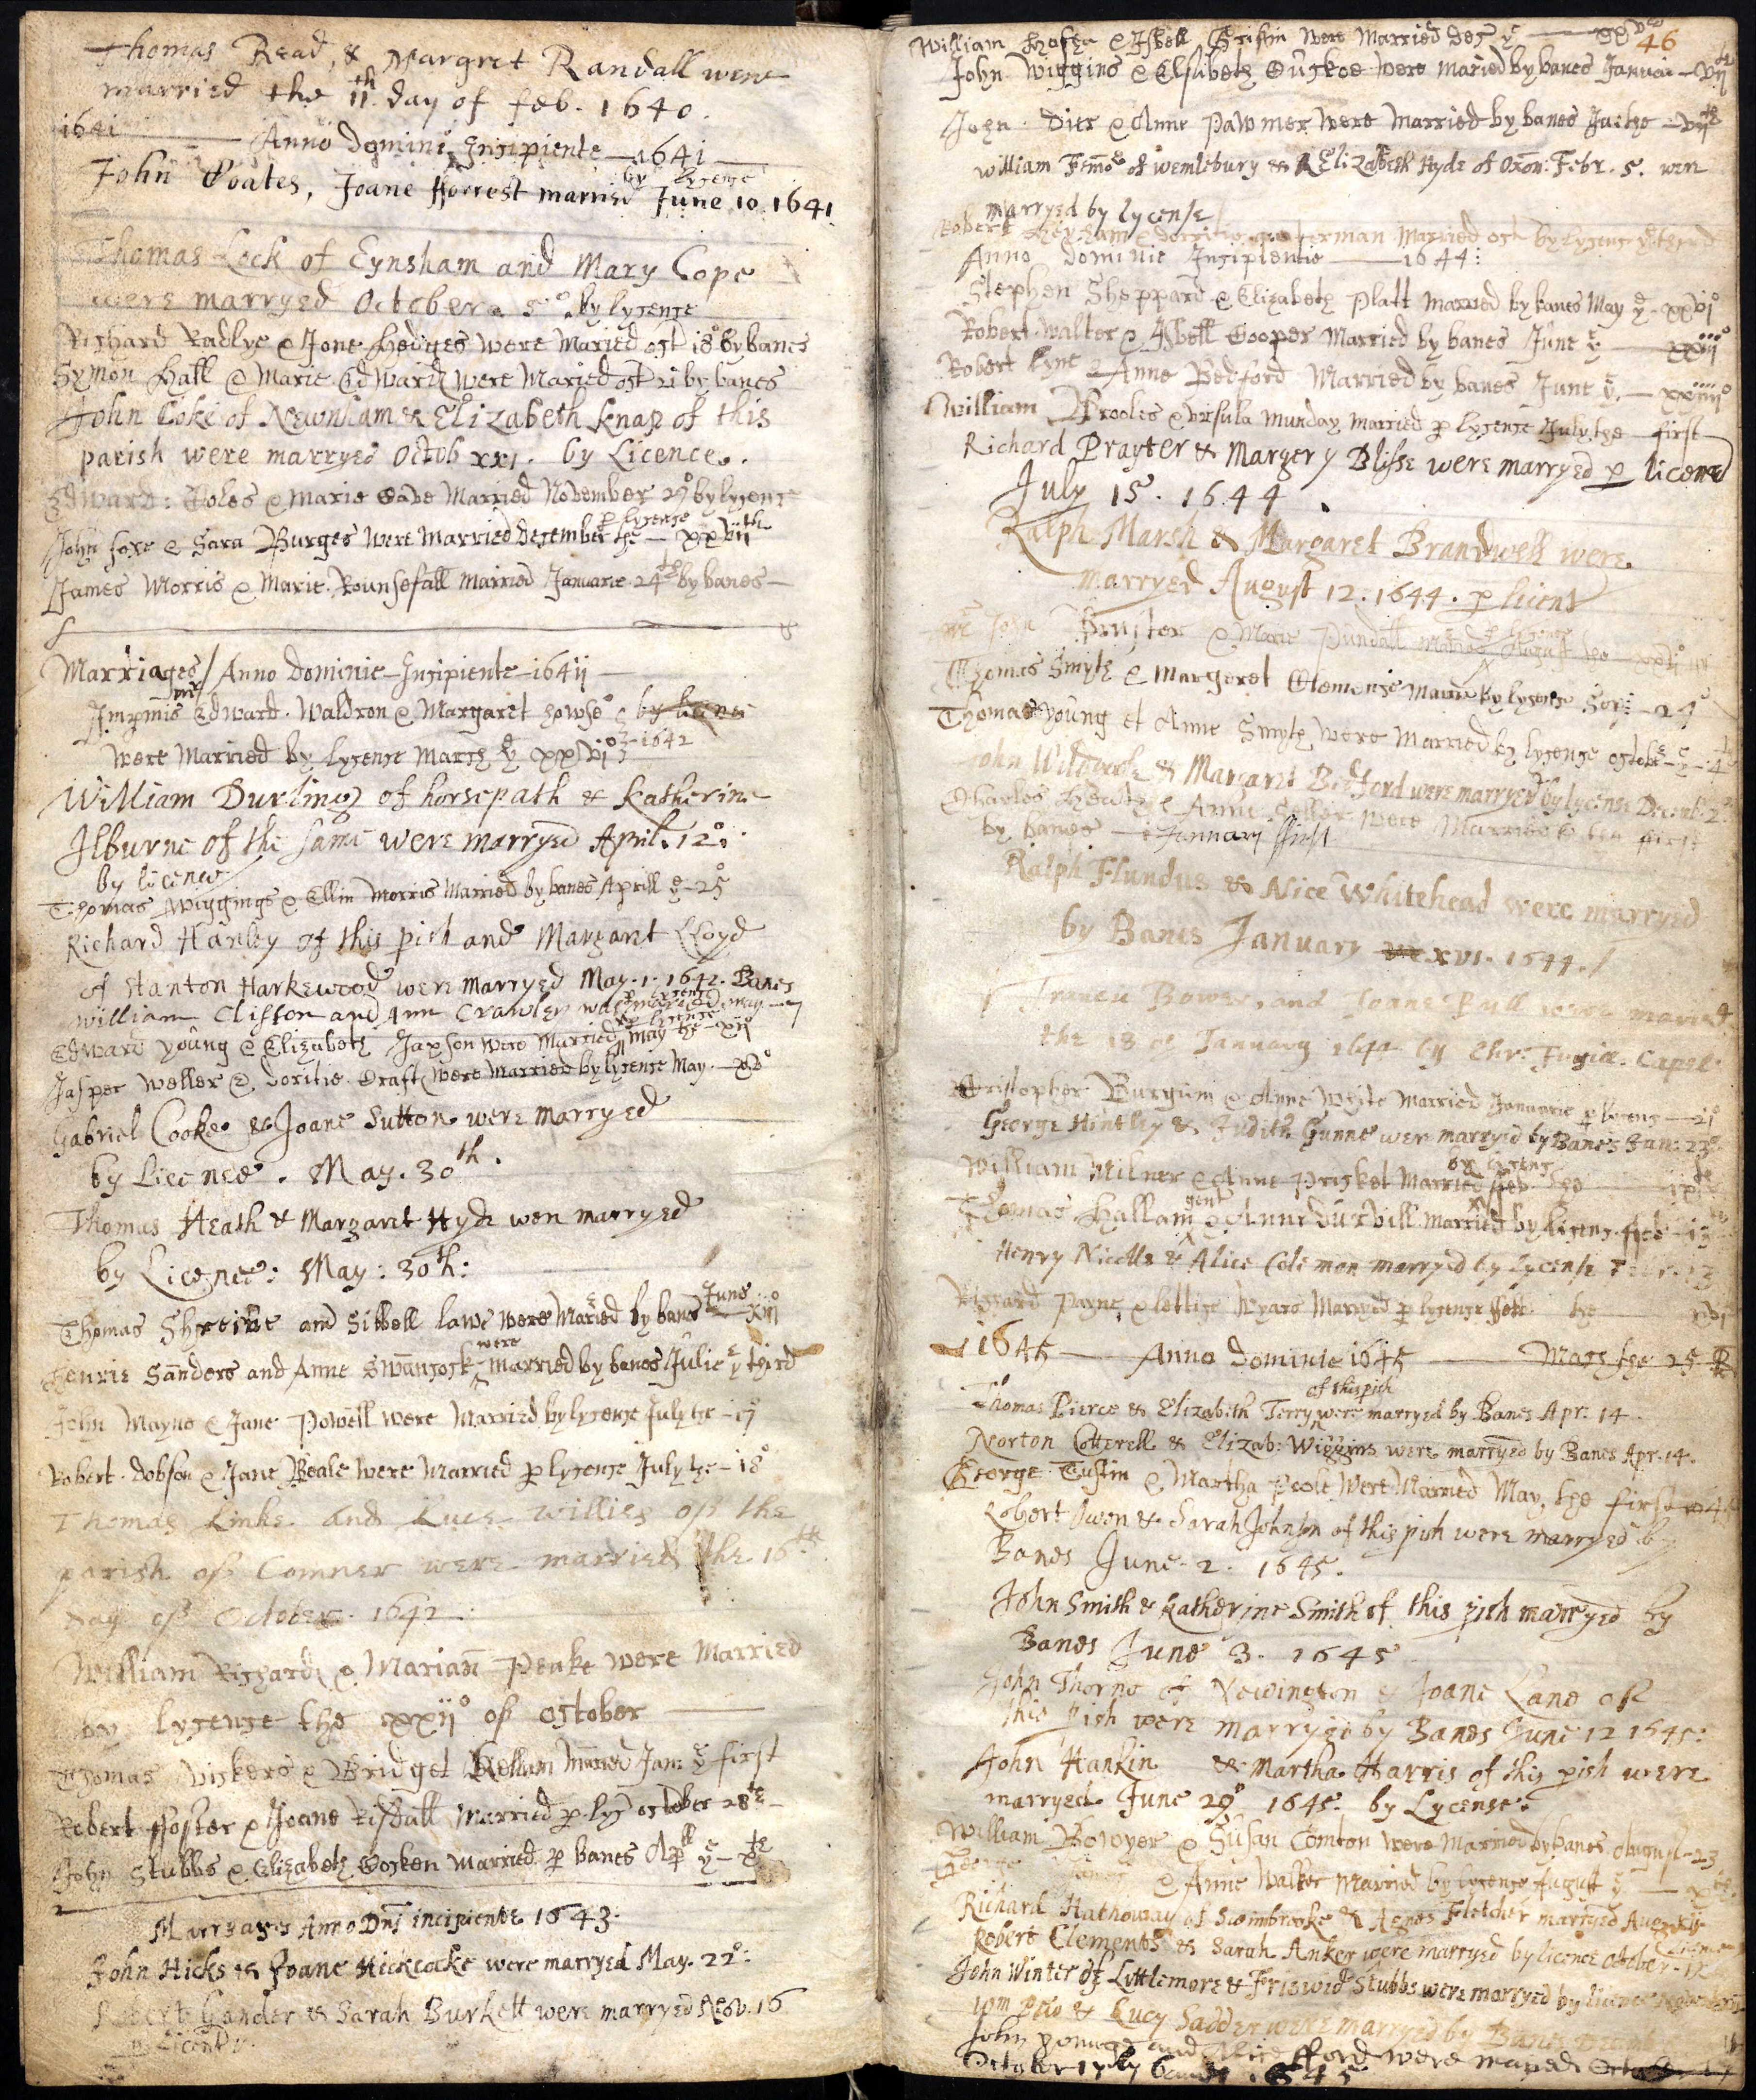 Thomas Read, & Margret Randall were
married the 11th day of feb. 1640.
1641
Anno Domini Incipiente 1641
by lycense
John Coates, Joane fforrest married June 10 1641
Thomas Lock of Eynsham and Mary Cope
were marryed October 5° by lycense
Richard Radlye & Jone Hedges were Maried oct 18° by banes
Symon Hall & Marie Edwards were Maried oct 21 by banes
John Coke of Newnham & Elizabeth Knap of this
parish were marryed Octob xxi. by Licence.
Edward: Coles & Marie Married November 29° by lycense
p lycense
John foxe & Sara Burges were Married December the xxviith
James Morris & Marie Rounsefall Married Januarie 24th by banes
Marriages / Anno Dominie Incipiente 164ii
Imprmis mr Edward Waldron & Margaret howse by licence
were Married by lycense March ye xxvi° 1642
William Durling of horsepath & Katherine
Ilburne of the same were marryed April. 12°:
by licence
Thomas Wiggings & Ellin Morris Married by banes Aprill ye 25°
Richard Hanley of this pish and Margaret Lloyd
of Stanton Harkewood were marryed May. 1. 1642. Banes
William Clifton and Ann Crawley was maried may 7
p lycense
Edward young & Elizabeth Jaxson were Married May the xii°
Jasper Weller & Doritie Craft were Married by lycense May xv°
Gabriel Cooke & Joane Sutton were marryed
by Licence. May. 30th.
Thomas Heath & Margaret Hyde wen marryed
by Licence: May: 30th:
Thomas Shreive and Sibbell lawe were Maried by banes June xiii°
Henrie Sanders and Anne Swancock were married by banes Julie ye third
John Mayne & Jane Powell were Married by lycense July the 17°
Robert Dobson & Jane Beale were Married p lycense July the 18°
Thomas Linke and Luce Willies of the
parish of Comner were married the 16th
day of October. 1642
William Richards & Marian Peake were Married
by lycense the xxii° of October
Thomas Vickers & Bridget Kellam Maried Jan: ye first
Robert ffoster & Joane Risdall Married p lyc october 28th
John Stubbs & Elizabeth Cosken Married p banes Apll ye xth
Marryages Anno Dni incipiente 1643:
John Hicks & Joane Hickcocke were marryed May. 22°:
Robert Gander & Sarah Burkett were marryed Nov. 16
p licent
46
William & Isbell Griffin were Married Dec ye
John Wiggins & Elsibeth were maried by banes Januar vii
John Dier & Anne Pawmer were Married by banes Ja: the viith
William of Wemlebury & Elizabeth Hyde of Oxon: Febr. 5. wen
marryed by lycense
Robert Married oct by lycense ye third
Anno Dominie Incipiente 1644:
Stephen Sheppard & Elizabeth Platt Married by banes May ye xxvi°
Robert Walter & Isbell Cooper Married by banes June ye xxiii°
Robert Lyne & Anne Bedford Married by banes June ye xxiiii°
William Brooles & Ursula Munday Married p lycense July the first
Richard Prayter & Margery Blisse were marryed p licence
July 15. 1644.
Ralph Marsh & Margaret Brandwell were
marryed August 12. 1644. p licent
John Bruster & Marie Pundall Maried p lycense August the
Thomas Smyth & Margeret Clemense Maried by lycense Sep: 24°
Thomas young et Anne Smyth were Married by lycense octob: ye 4
John & Margaret Bedford were marryed by lycense Decemb: 2
Charles & Anne were Married
by banes January first
Ralph Flundus & Alice Whitehead were marryed
by Banes January xvi. 1644.
Bower, and Joane Bull were maried
the 18 of January 1644 by Chr: Capel.
Cristopher Burgum & Anne White Married Januarie p lycens 21°
George Hintley & Judith Gunne were marryed by Banes Jan: 23°
by lycens
William Milner & Anne Pricket Married feb the
Thomas Hallam gent & Anne Durvill Married by licens. ffeb 13
Henry Nicolls & Alice Coleman marryed by lycense Febr. 13
Richard Payne & lettice Wyars Married p lycense ffeb: the xvi
1645 Anno Dominie 1645 March the 25
of this pish
Thomas Pierce & Elizabeth Terry were marryed by Banes Apr: 14.
Norton Cotterell & Elizab: Wiggins were marryed by Banes Apr. 14.
George Tustin & Martha Poole were Married May, the first
Robert Owen & Sarah Johnson of this pish were marryed by
Banes June. 2. 1645.
John Smith & Katherine Smith of this pish marryed by
Banes June 3. 1645
John Thorne of Newington & Joane Lane of
this pish were marryed by Banes June 12 1645:
John Hankin & Martha Harris of this pish were
marryed June 29° 1645. by Lycense.
William Bowyer & Susan Comton were Married by banes August 23
George & Anne Walker Married by lycense August ye
Richard Hathoway of Swinbrooke & Agnes Fletcher marryed Aug
Robert Clements & Sarah Anker were marryed by licence October
John Winter of Lyttlemore & Friswid Stubbs were marryed by licence
Wm & Lucy Sadder were marryed by Banes
John younge and Alice fford were maried
October 17 by banes 1645